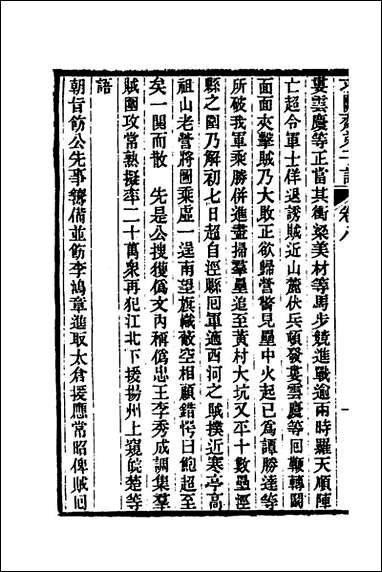 求闕齋弟子記 卷八 一
婁雲慶等正當其衝梁美材等馬步競進戰逾兩時羅天順陣
亡超令軍士佯退誘賊近山麓伏兵頓發婁雲慶等回鞭轉鬬
面面夾擊賊乃大敗正欲歸營瞥見壘中火起已爲譚勝達等
所破我軍乘勝併進盡掃羣壘追至黃村大坑又平十數壘涇
縣之圍乃解初七日超自涇縣回軍適西河之賊撲近寒亭高
祖山老營將圖乘虛一逞南望旗幟蔽空相顧錯愕曰鮑超至
矣一鬨而散 先是公搜獲僞文內稱僞忠王李秀成調集羣
賊圖攻常熟擬率二十萬衆再犯江北下援揚州上窺皖楚等
語
朝旨飭公先事籌備並飭李鴻章進取太倉援應常昭俾賊回